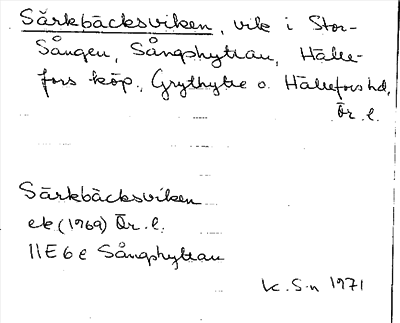 Särkbäcksviken, vik i Stor-
Sången, Sångshyttan, Hälle-
fors köp., Grythytte o. Hällefors hd,
Ör. l.
Särkbäcksviken
ek (1969) Ör. l.
11E 6e Sångshyttan
K. S-n 1971